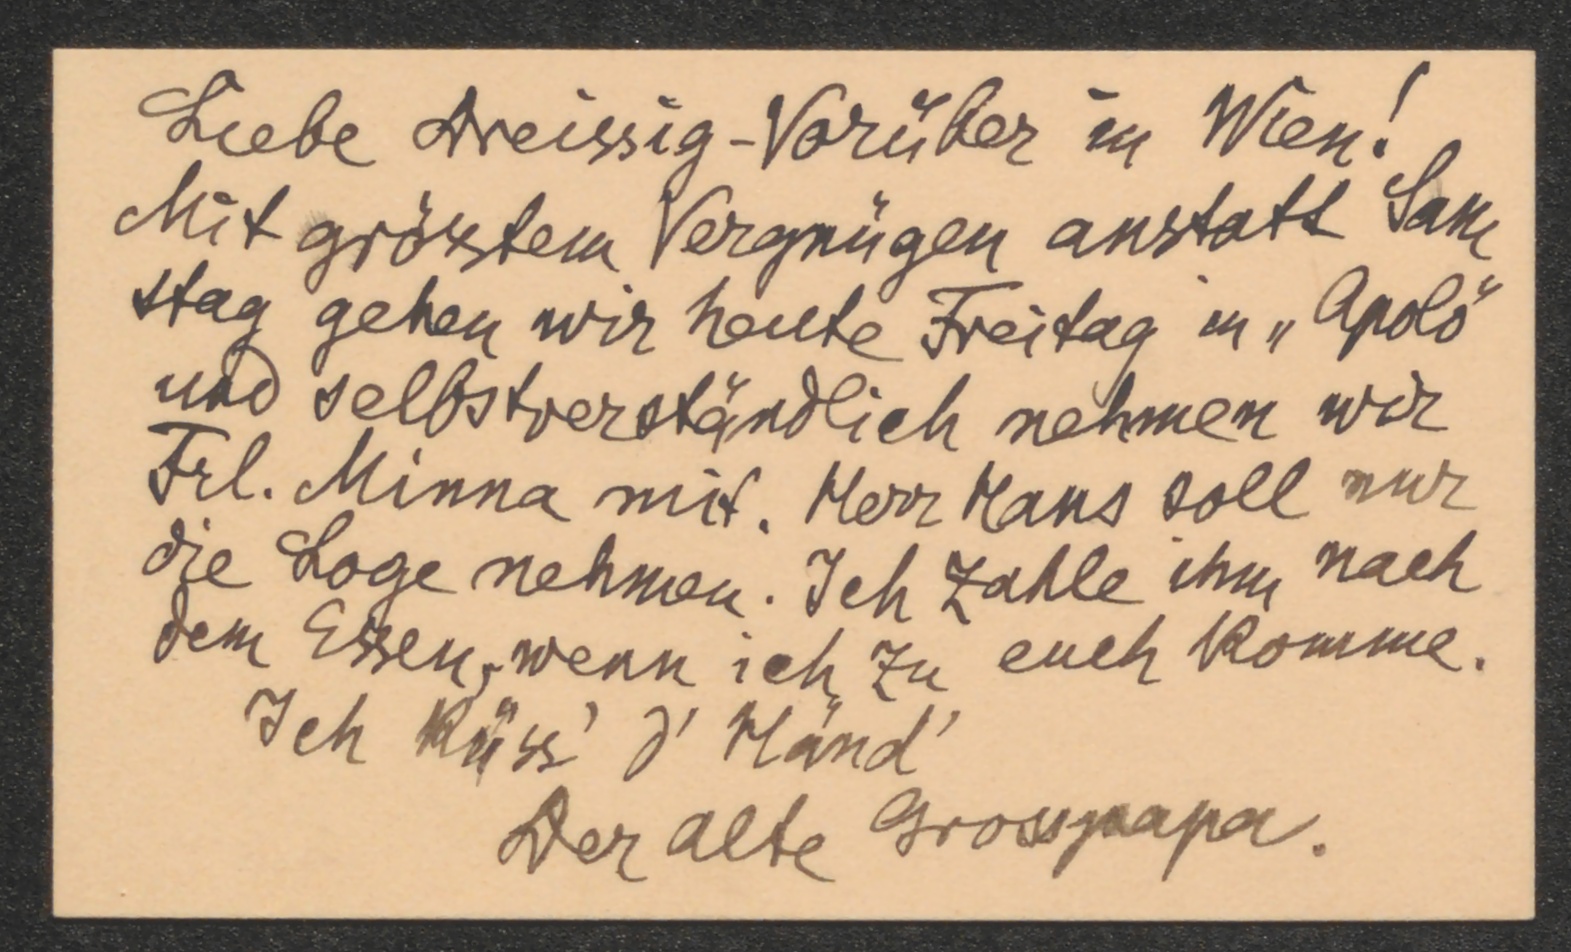 Liebe Dreissig-Vorüber in Wien!
Mit grösstem Vergnügen anstatt Sam
stag gehen wir heute Freitag in „Apolo"
und selbstverständlich nehmen wir
Frl. Minna mit. Herr Hans soll nur
die Loge nehmen. Ich zahle ihm nach
dem Essen, wenn ich zu euch komme.
Ich küss' d' Händ'
Der alte Grosspapa.